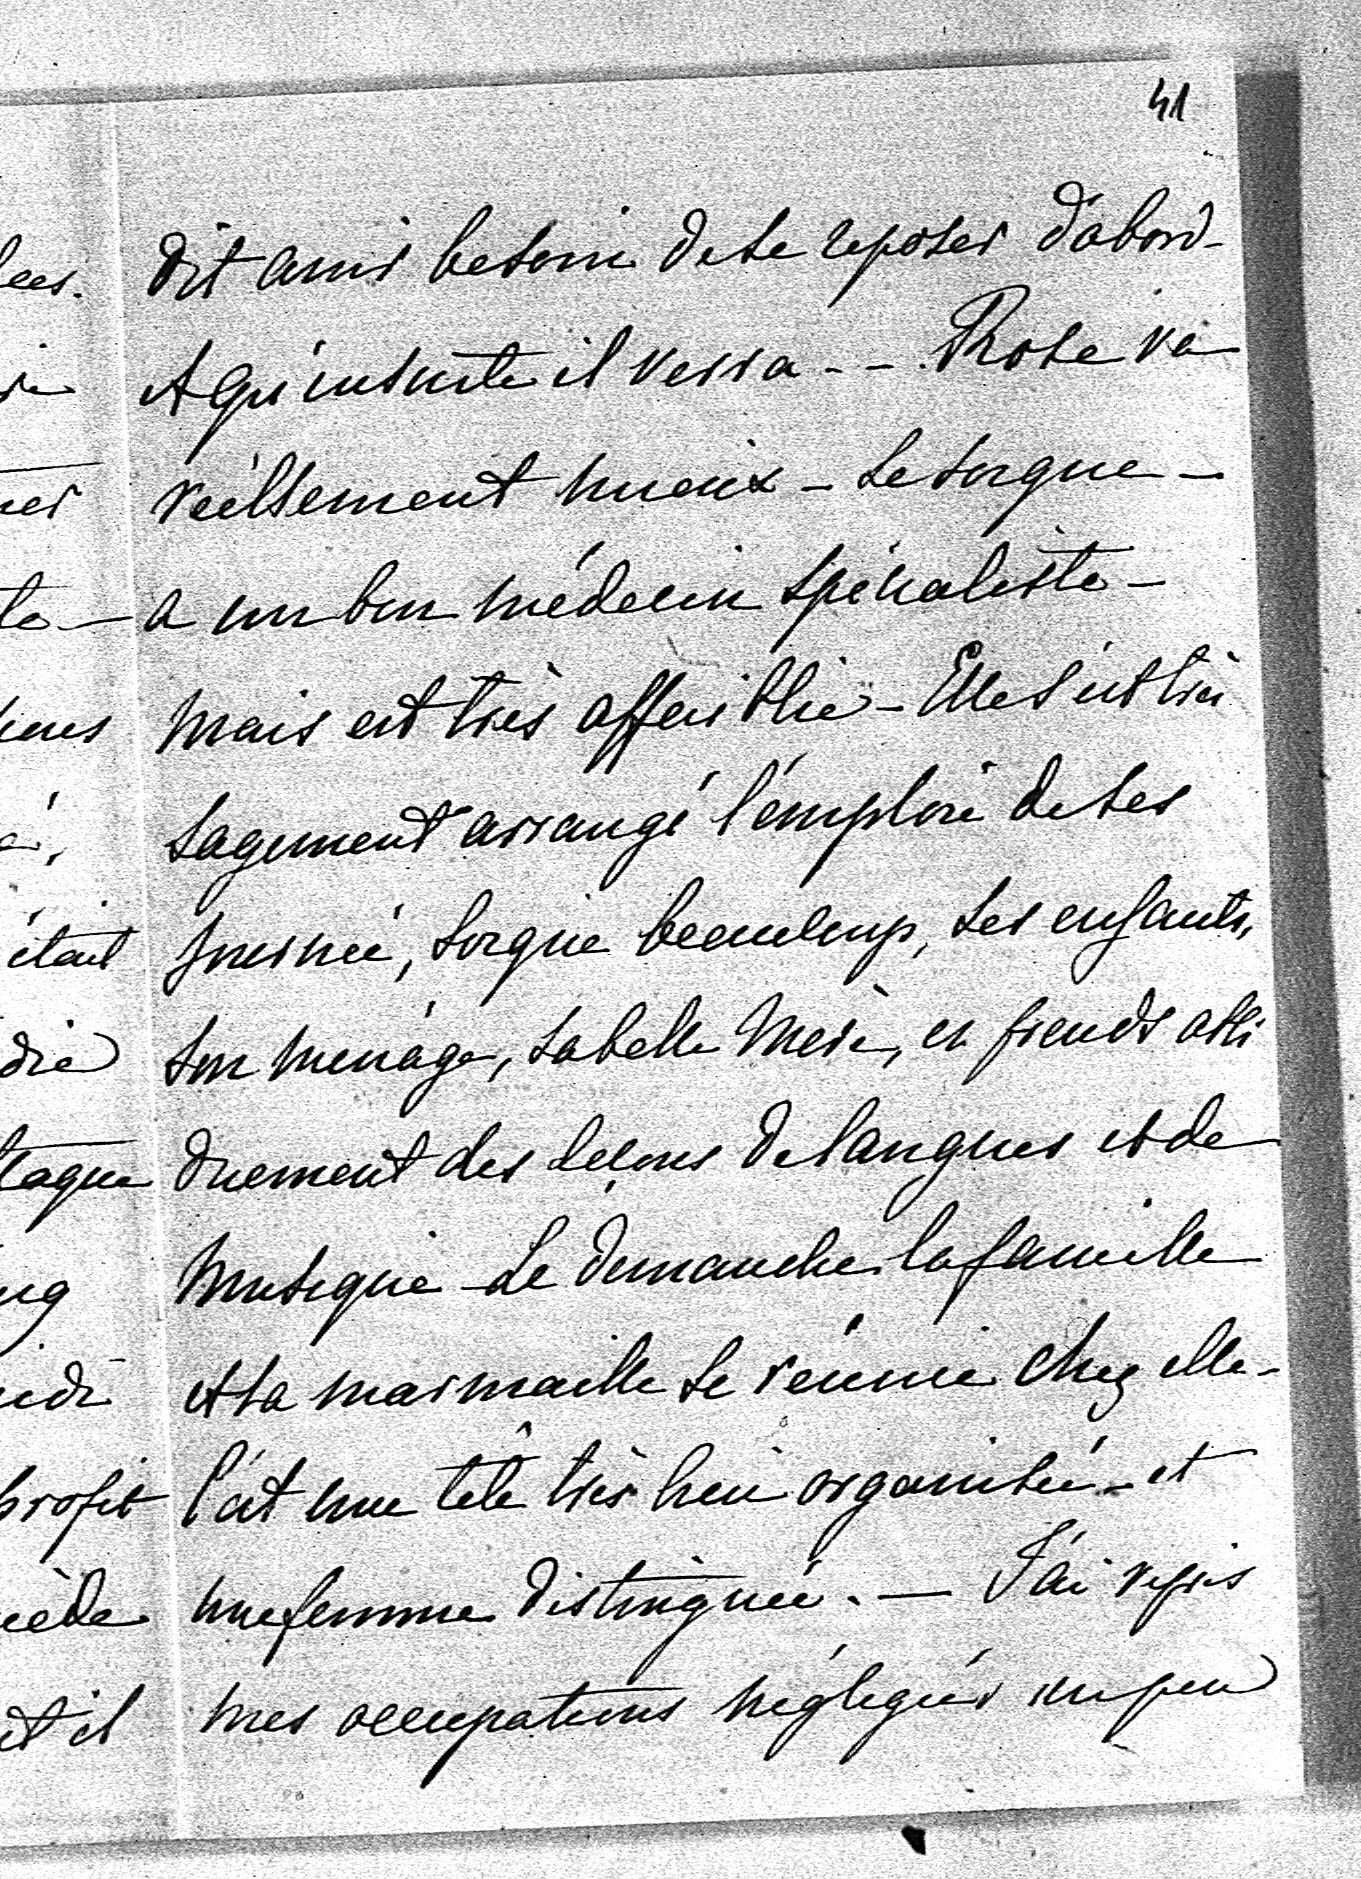 41
dit avoir besoin de se reposer d'abord
et qu'ensuite il verra - - . Rose va
réellement mieux - Se soigne -
a un bon médecin spécialiste -
mais est très affaiblie - Elle s'est très
sagement arrangé l'emploi de ses
journée, soigne beaucoup, ses enfants,
son ménage, sa belle mère, et prends assi
duement des leçons de langues et de
musique - Le dimanche la famille
et la marmaille se réunie chez elle -
C'est une tête très bien organisée - et
une femme distinguée. - J'ai repris
mes occupations négligées un peu
ees.
étant
die
taque
profit
et il